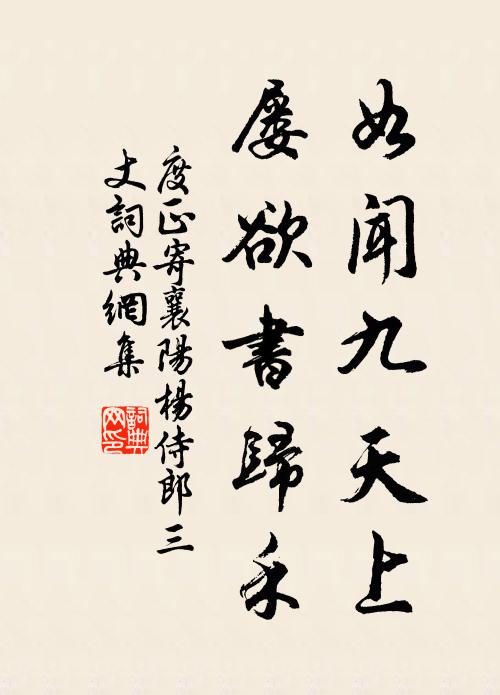 如聞九天上
屢欲書歸禾
度正寄襄陽楊侍郎三
丈詞典網集
詞典
网印